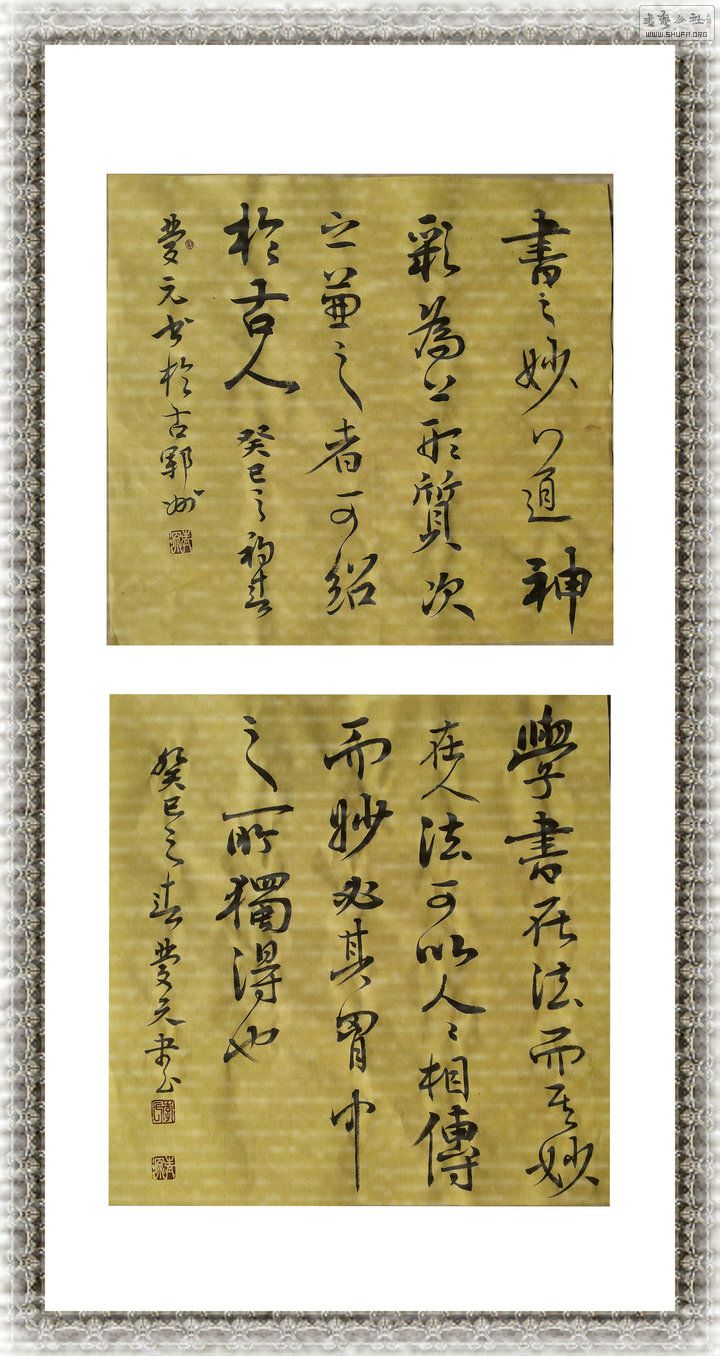 書藝公社
WWW.SHUFA.ORG
書之妙道神
彩為上形質次
之兼之者可紹
於古人 癸巳之初春
夢元书於古鄆州
學書在法而其妙
在人法可以人〻相傳
而妙必其胷中
之所獨得也
癸巳之春夢元書